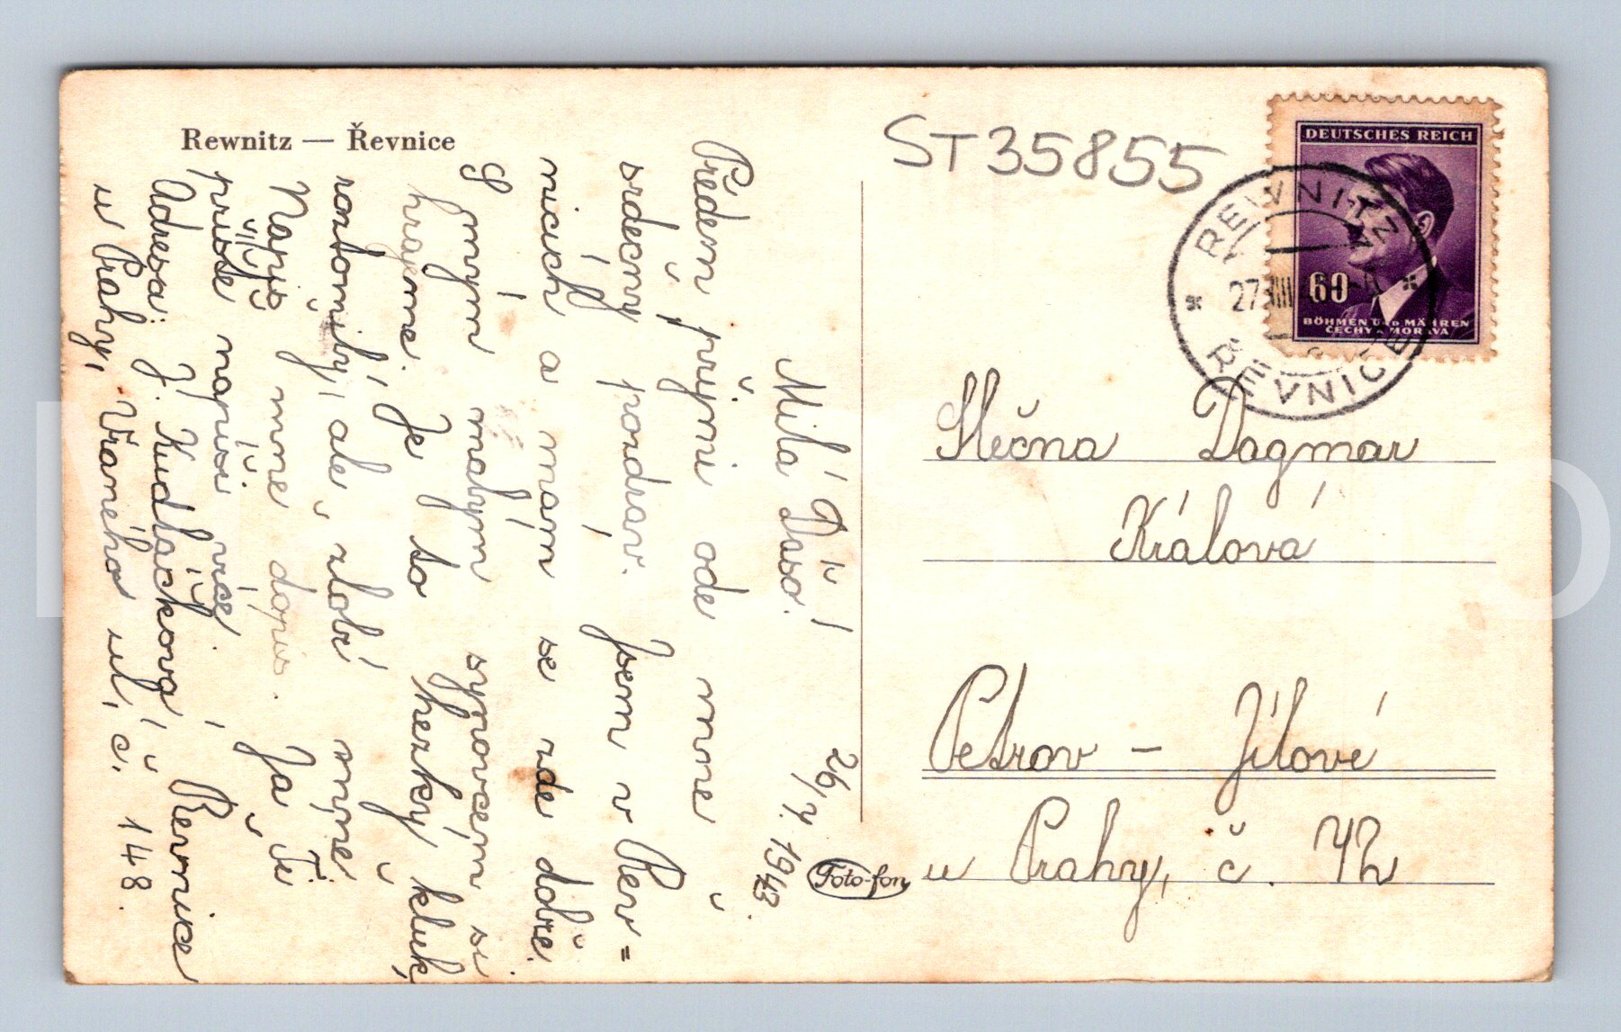 Rewnitz — Řevnice
ST35855
DEUTSCHES REICH
60
BÖHMEN UND MÄHREN
ČECHY A MORAVA
REWNITZ
ŘEVNICE
26/7. 1943.
Milá Dášo!
Předem přijmi ode mne
srdečný pozdrav. Jsem v Řev=
nicích a mám se zde dobře.
S mým malým synovcem si
hrajeme. Je to hezký kluk,
roztomilý, ale zlobí
Napiš mně dopis. Já Ti
příště napíši více.
Adresa: J. Kudláčková, Řevnice
u Prahy, Vraného ul, č. 148.
Slečna Dagmar
Králová
Petrov – Jílové
u Prahy, č. 42
Foto-fon